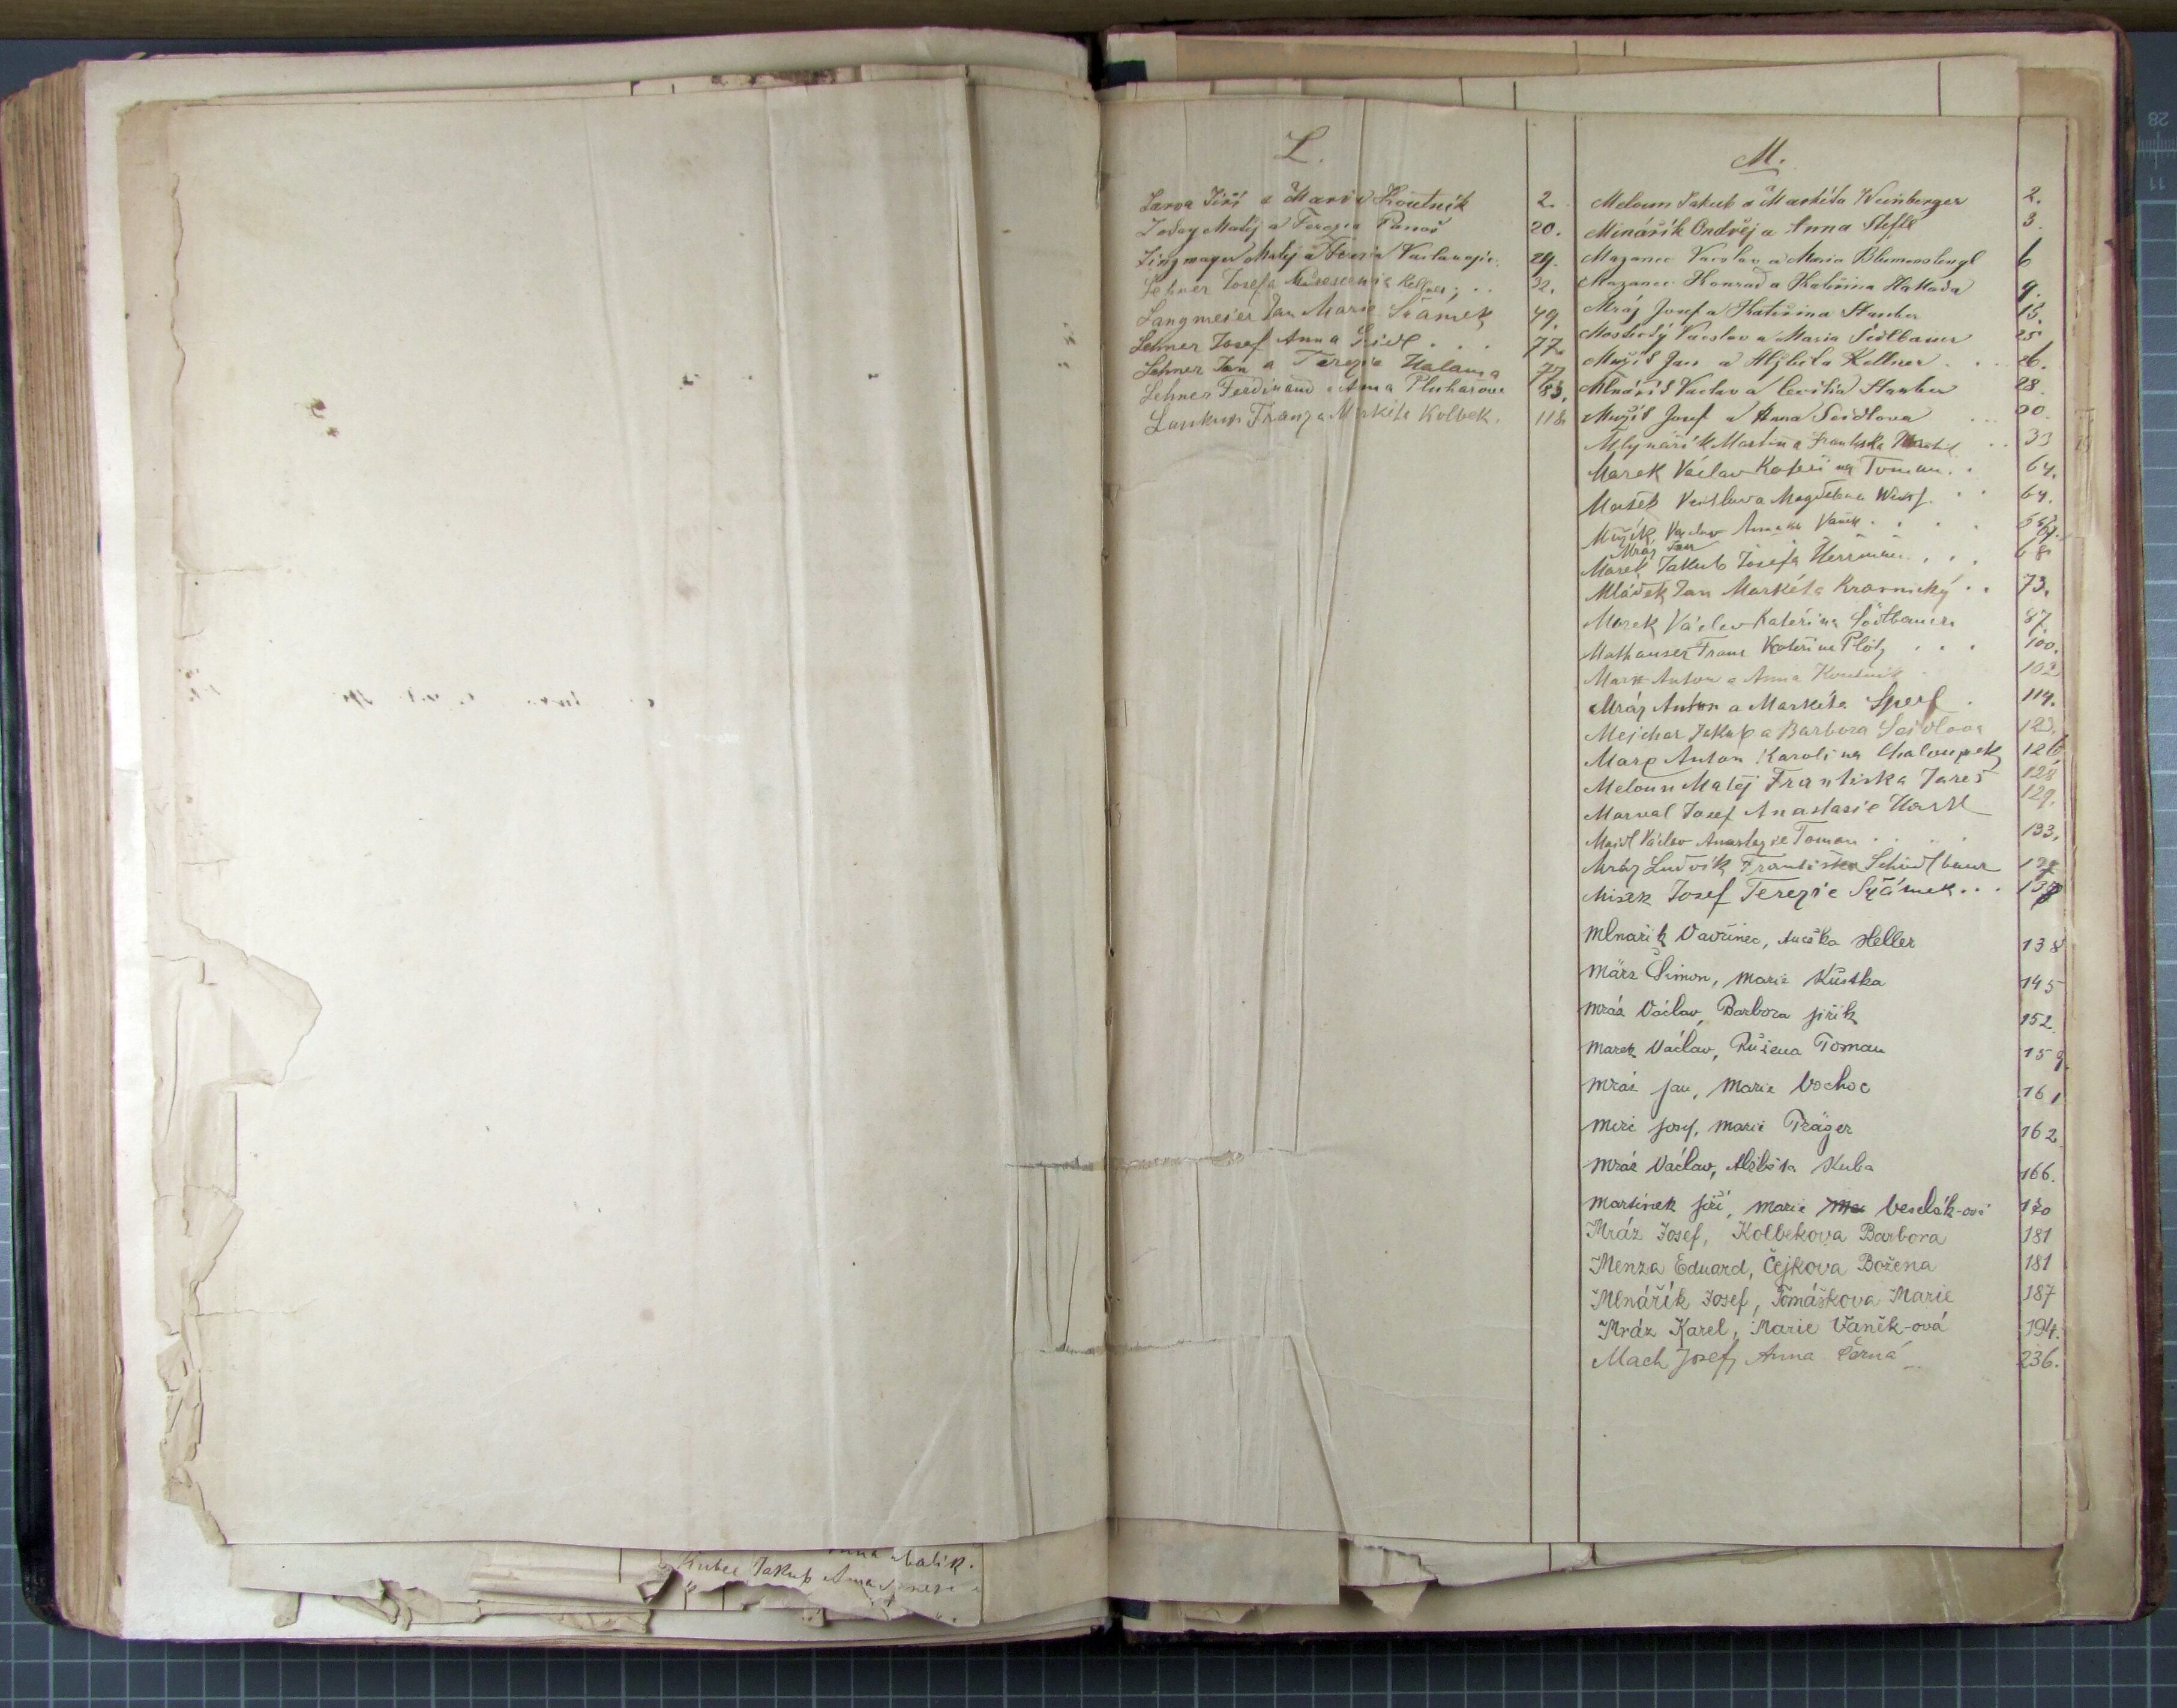 L.
Jiří a Maria Koutník 2.
Matěj a Terezia Panoš 20.
Matěj a 29.
Lehner Josef a Kellner 32.
Langmeier Jan Marie Šrámek 49.
Lehner Josef Anna Šidl 77.
Lehner Jan a Terezie Halama 77
Lehner Ferdinand Anna Pluhařova 83.
Franz a Markéta Kolbek. 118
M.
Meloun Jakub a Markéta Weinberger 2.
Minářík Ondřej a Anna 3.
Mazanec Václav a Maria 6
Mazanec Konrad a Kateřina 9.
Mráz Josef a Kateřina Stauber 15.
Václav a Maria Šidlbauer 25
Mužík Jan a Alžběta Kellner 26.
Mlnářík Václav a Cecilia Stauber 28
Mužík Josef a Anna Seidlova 30.
Mlynářík Martin a Františka 33
Marek Václav Kateřina Toman 64.
Mašek a Magdalena 64.
Mužík Václav Anna Vaněk
Mráz Jan
Marek Jakub Josefa Herrman 68
Mládek Jan Markéta Kravnický 73.
Marek Václav Kateřina 87.
Mathauser Franz Kateřina Plötz 100.
Anton a Anna Koutník 102
Mráz Anton a Markéta Sperl 114.
Mejchar Jakub a Barbora Seidlova 123.
Anton Karolina Chaloupek 126
Meloun Matěj Františka Jareš 128
Marval Josef Anastasie 129.
Maidl Václav Anastazie Toman 133.
Mráz Ludvík Františka Schiedlbaur
Misek Josef Terezie
Mlnařík Vavřinec, Heller 138
März Šimon, Marie Kůstka 145
Mráz Václav, Barbora Jiřík 152.
Marek Václav, Růžena Toman 159
Mráz Jan, Marie Vochoc 161
Josef, Marie Träger 162.
Mráz Václav, Alžběta Kuba 166.
Martínek Jiří, Marie Veselák-ová 170
Mráz Josef, Kolbekova Barbora 181
Menza Eduard, Čejkova Božena 181
Mlnářík Josef, Tomáškova Marie 187
Mráz Karel, Marie Vaněk-ová 194.
Mach Josef, Anna Černá 236.
Jakub Anna